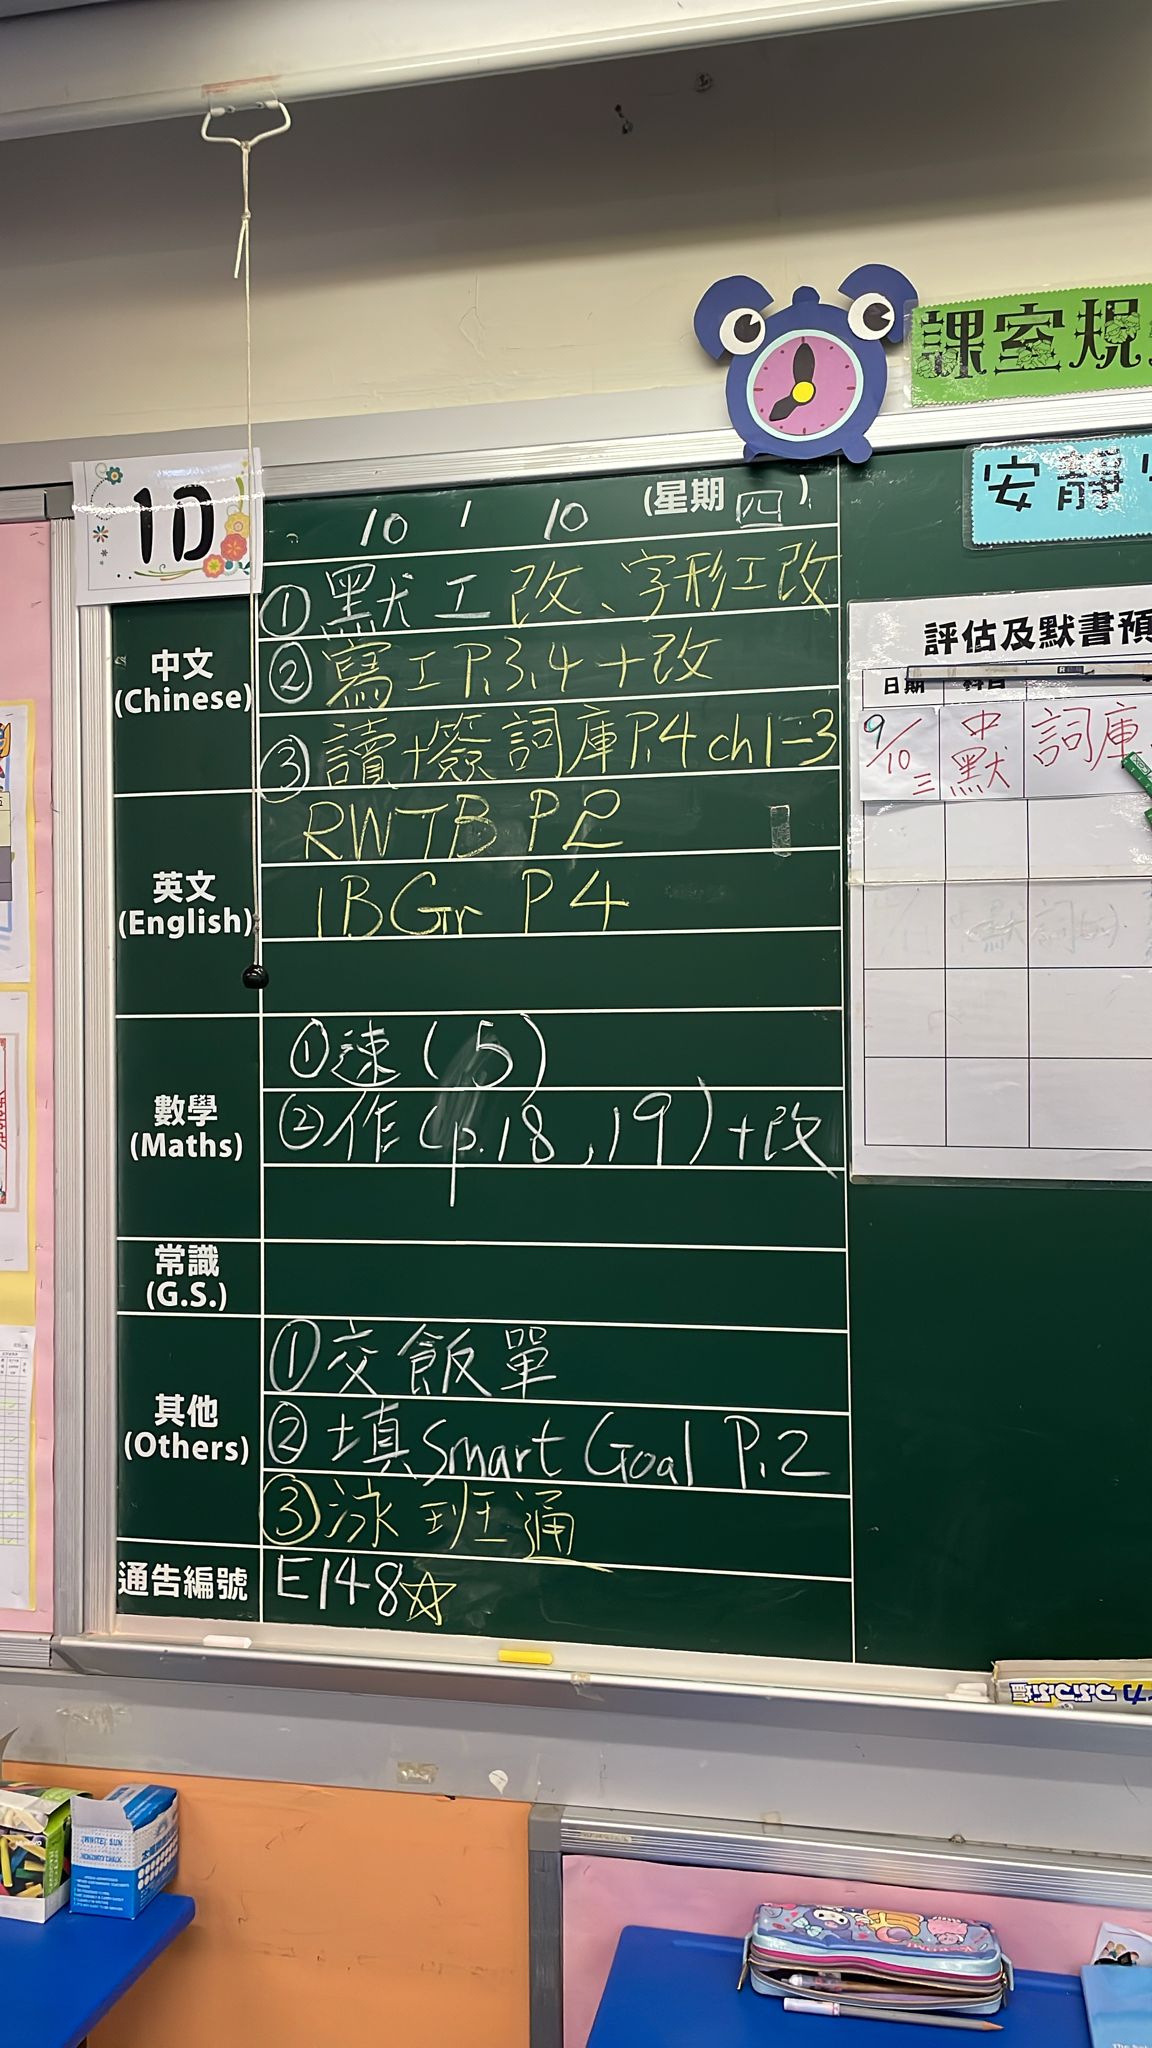 課室規
安靜
1D
10 1 10 (星期四)
中文
(Chinese)
①默工改、字形工改
②寫工P.3,4+改
③讀+簽詞庫P.4 ch1-3
英文
(English)
RWTB P2
1BGr P4
數學
(Maths)
①速(5)
②作(p.18,19)+改
常識
(G.S.)
其他
(Others)
①交飯單
②填Smart Goal P.2
③泳班通
通告編號
E148☆
評估及默書預
日期 科目
9/10 三 中默 詞庫
WHITE SUN